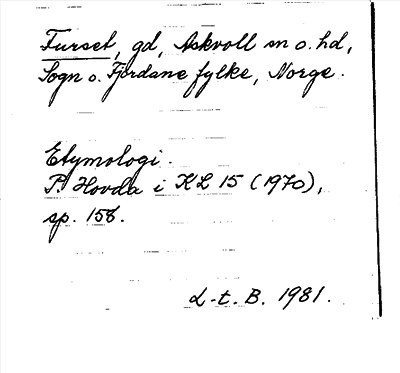 Furset, gd, Askvoll sn o. hd,
Sogn o. Fjordane fylke, Norge.
Etymologi.
P. Hovda i KL 15 (1970),
sp. 158.
L-t. B. 1981.